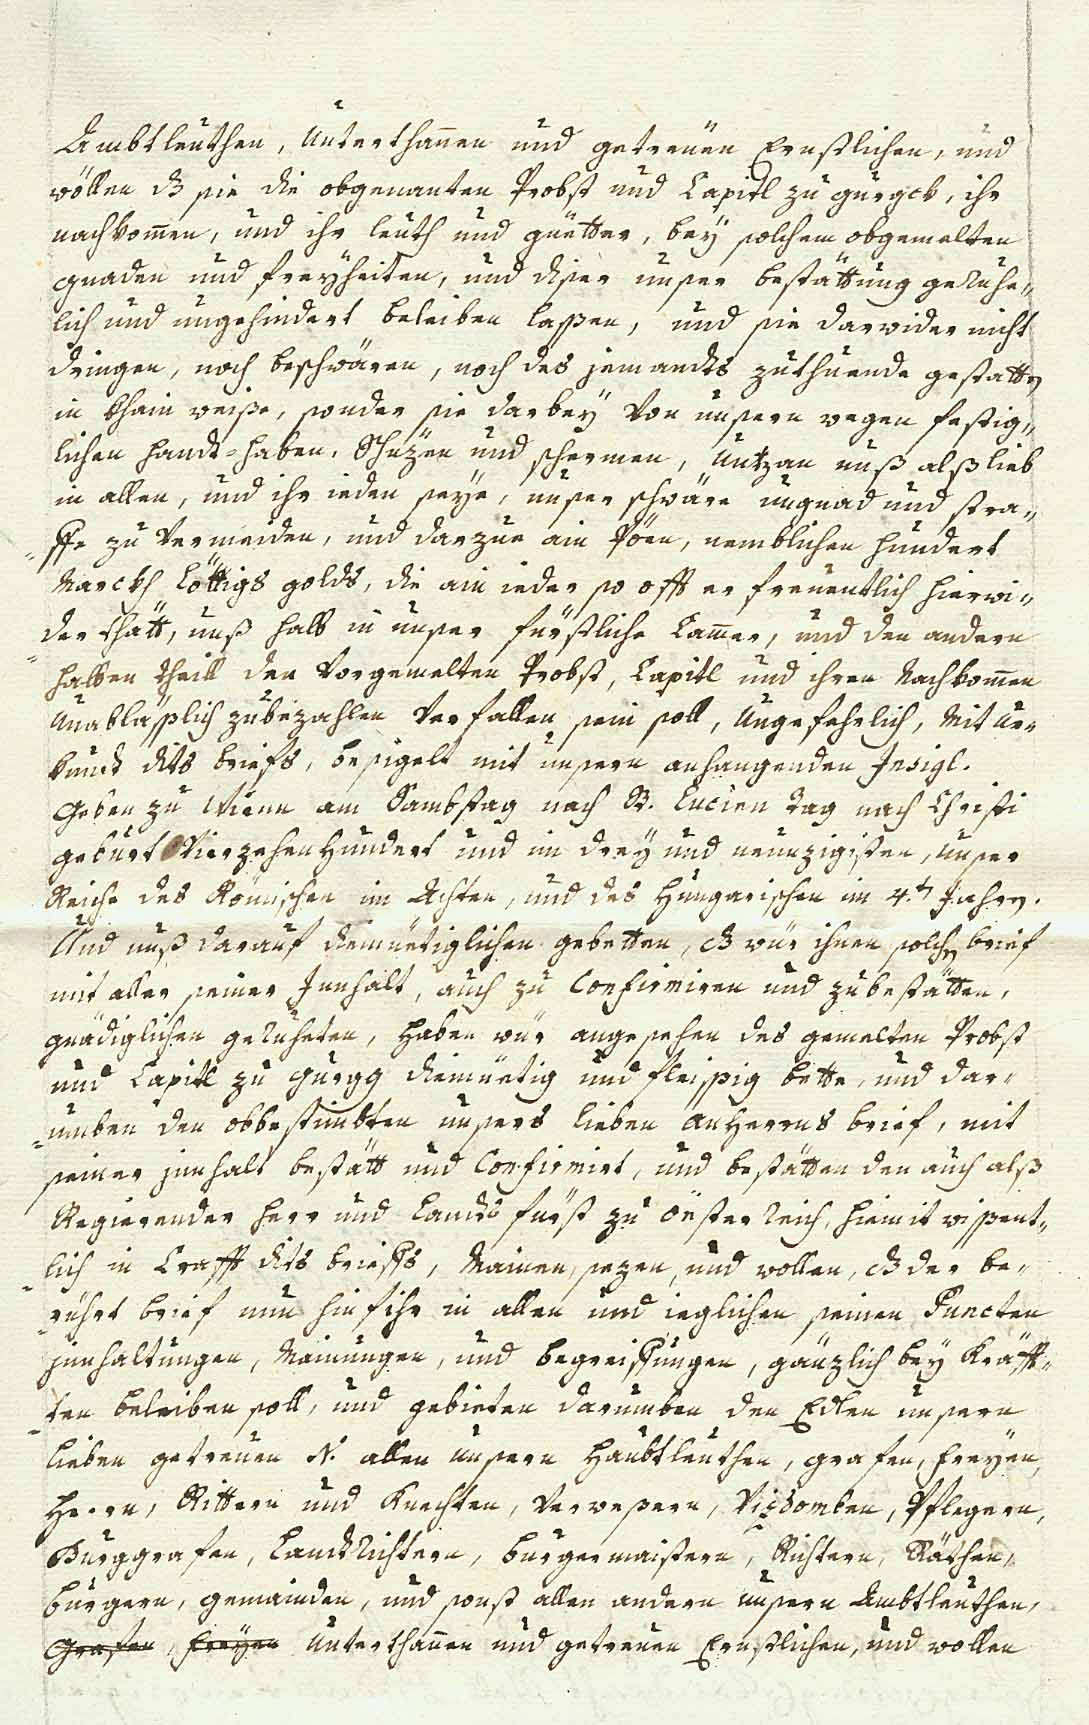 Ambtleuthen, Unterthanen und getreüen Ernstlichen, und
wöllen dß sie die obgenanten Probst und Capitl zu gurgck, ihr
nachkomen, und ihr leuth und güetter, beÿ solchem obgemelten
gnaden und freÿheiten, und diser unser bestättung geruhe„
lich und ungehindert beleiben laßen, und sie darwider nicht
dringen, noch beschwären, noch des jemandts zuthuende gestatten
in khain weiße, sonder sie darbeÿ von unsern wegen festig„
lichen handt-haben, Schüzen und schermen, Untzan unß alß lieb
in allen, und ihr ieden seÿe, unser schwäre ungnad und stra„
ffe zu Vermeiden, und darzue ain Pöen, nemblichen hundert
Marckh löttigs golds, die ain ieder so offt er freuentlich hierwi„
der thätt, unß halb in unser fürstliche Camer, und den andern
halben theill den Vorgemelten Probst, Capitl und ihren Nachkomen
Unabläßlich zubezahlen Verfallen sein soll, Ungefehrlich, Mit Ur„
kundt dits briefs, besigelt mit unsern anhangenden Insigl.
Geben zu Wienn am Sambstag nach St. Lucien tag nach Christi
geburt Vierzehen Hundert und im dreÿ und neunzigisten, Unser
Reiche des Römischen im Achten, und des Hungarischen im 4.t Jahrn.
Und unß darauf diemüetiglichen gebetten, dß wür ihnen solchen brief
mit aller seiner Innhalt, auch zu Confirmiren und zubestätten,
gnädiglichen geruheten, haben wür angesehen des gemelten Probst
und Capitl zu gurgg diemüetig und fleißig bette, und dar„
umben den obbestimbten unsers lieben AnHerrns brief, mit
seiner innhalt bestätt und Confirmirt, und bestätten den auch alß
Regierender Herr und Landts fürst zu Oesterreich, hiemit wißent„
lich in Crafft dits brieffs, Mainen, sezen, und wollen, dß der be„
rührt brief nun hinfihr in allen und ieglichen seinen Puncten
innhaltungen, Mainungen, und begreiffungen, gänzlich beÿ Kräff„
ten beleiben soll, und gebieten darumben den Edlen unsern
lieben getreuen N. allen unsern Haubtleuthen, grafen, freÿen,
Herrn, Rittern und Knechten, Verweßern, Vizdomben, Pflegern,
Burggrafen, Landtrichtern, burgermaistern, Richtern, Räthen,
burgern, gemainden, und sonst allen andern unsern Ambtleuthen,
Grafen, freÿen Unterthanen und getreuen Ernstlichen, und wollen